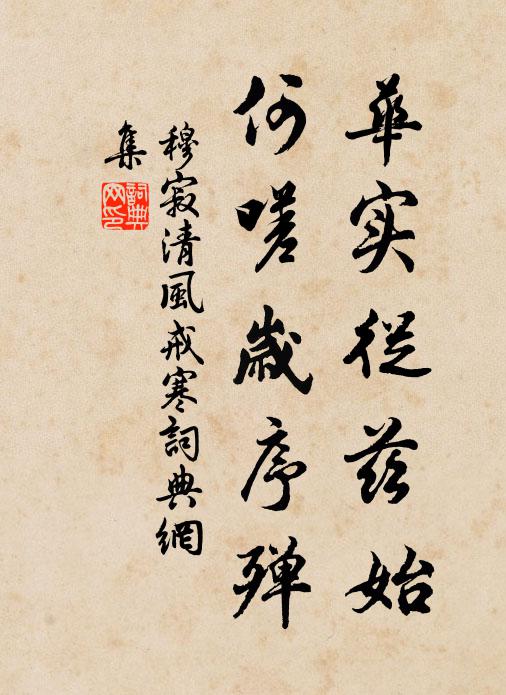 華实從茲始
何嗟歲序殫
穆寂清風戒寒詞典網
集
詞典
网印